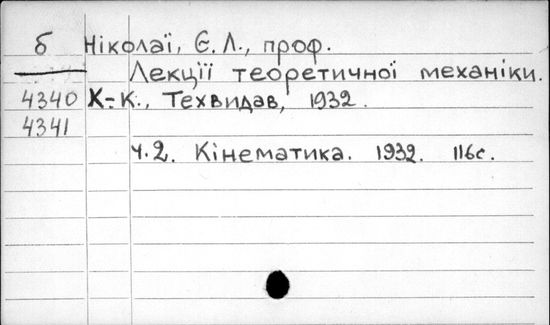 б Ніколаї, Є. Л., проф.
Лекції теоретичної механіки.
4340 Х.-К., Техвидав, 1932.
4341
ч.2. Кінематика. 1932. 116с.